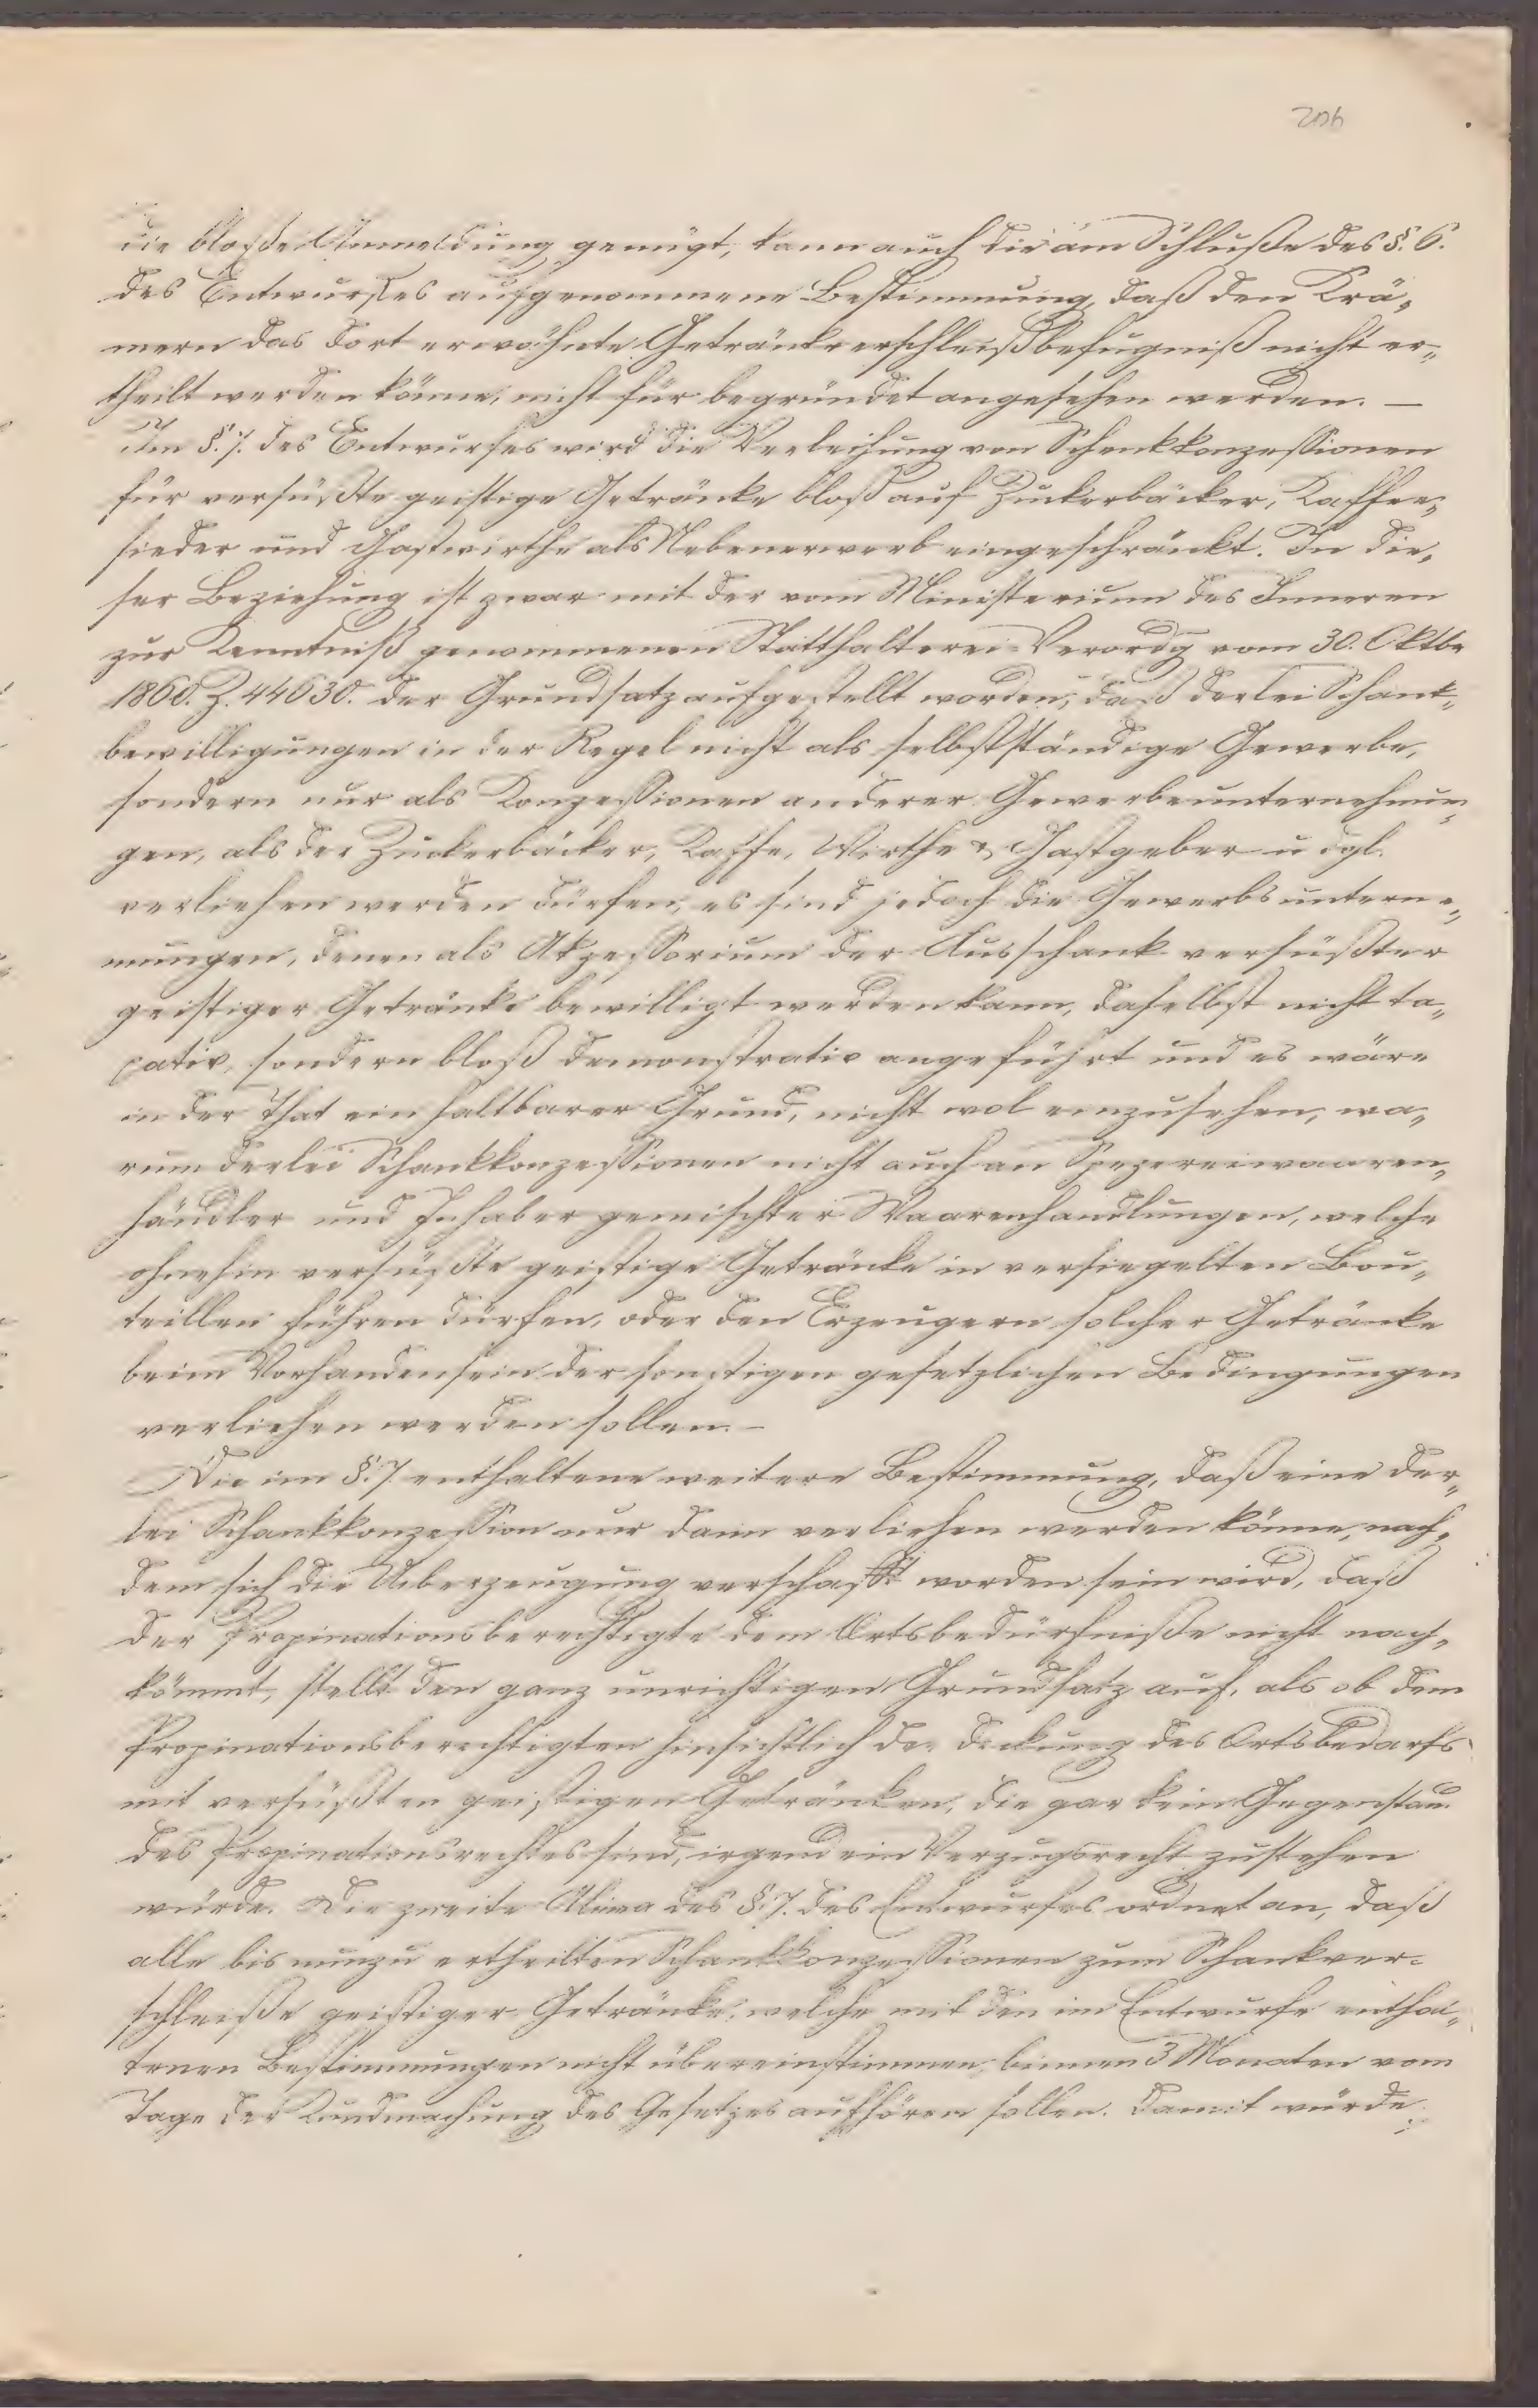 206
die bloße Anmeldung genügt, kann auch die am Schluße des §. 6.
des Entwurfes aufgenommene Bestimmung, daß den Krä„
mern das dort erwähnte Getränkverschleißbefugniß nicht er„
theilt werden könne, nicht für begründet angesehen werden. —
Im §. 7. des Entwurfes wird die Verleihung von Schenkkonzessionen
für versüßte geistige Getränke bloß auf Zuckerbäcker, Kaffee„
sieder und Gastwirthe als Nebenerwerb eingeschränkt. In die„
ser Beziehung ist zwar mit der vom Ministerium des Inneren
zur Kenntniß genommenen Statthalterei-Verordg vom 30. Oktbr
1860. Z. 44630. der Grundsatz aufgestellt worden, daß derlei Schank„
bewilligungen in der Regel nicht als selbstständige Gewerbe,
sondern nur als Konzessionen anderer Gewerbeunternehmun„
gen, als der Zuckerbäcker, Kaffe, Wirthe & Gastgeber u dgl.
verliehen werden dürfen, es sind jedoch die Gewerbsunterne„
mungen, denen als Akzessorium der Ausschank versüßter
geistiger Getränke bewilligt werden kann, daselbst nicht ta„
xativ, sondern bloß demonstrativ angeführt und es wäre
in der That ein haltbarer Grund, nicht wol einzusehen, wa„
rum derlei Schankkonzessionen nicht auch an Spezereiwaaren„
händler und Inhaber gemischter Waarenhandlungen, welche
ohnehin versüßte geistige Getränke in versiegelten Bou„
teillen führen dürfen, oder den Erzeugern solcher Getränke
beim Vorhandensein der sonstigen gesetzlichen Bedingungen
verliehen werden sollen. —
Die im §. 7 enthaltene weitere Bestimmung, daß eine der„
lei Schankkonzession nur dann verliehen werden könne, nach„
dem sich die Ueberzeugung verschafft worden sein wird, daß
der Propinationsberechtigte dem Ortsbedürfniße nicht nach„
kömmt, stellt den ganz unrichtigen Grundsatz auf, als ob dem
Propinationsberechtigten hinsichtlich der Deckung des Ortsbedarfs
mit versüßten geistigen Getränken, die gar kein Gegenstand
des Propinationsrechtes sind, irgend ein Vorzugsrecht zustehen
würde. Die zweite Alinea des §. 7. des Entwurfes ordnet an, daß
alle bis nunzu ertheilten Schankkonzessionen zum Schankver-
schleiße geistiger Getränke, welche mit den im Entwurfe enthal„
tenen Bestimmungen nicht übereinstimmen, binnen 3 Monaten vom
Tage der Kundmachung des Gesetzes aufhören sollen. Damit würde